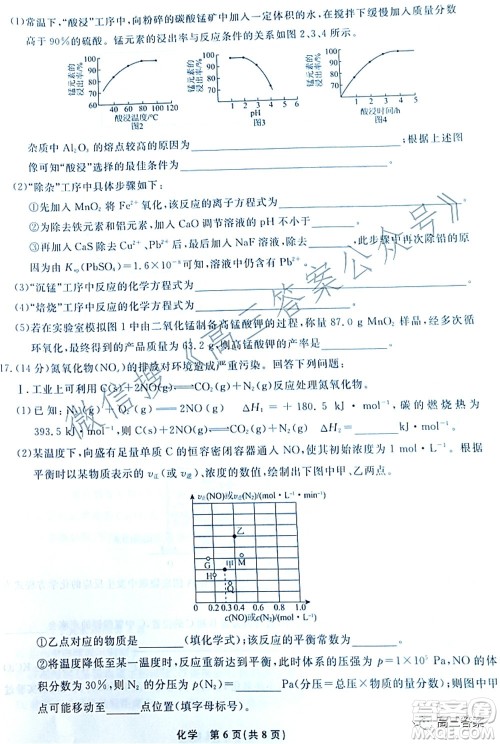 (1)常温下,“酸浸”工序中,向粉碎的碳酸锰矿中加入一定体积的水,在搅拌下缓慢加入质量分数
高于90%的硫酸。锰元素的浸出率与反应条件的关系如图2、3、4所示。
锰元素的浸出率/%
100
90
80
70
60
20 40 60 80 100 120
酸浸温度/℃
图2
锰元素的浸出率/%
100
80
60
40
20
0 1 2 3 4 5
pH
图3
锰元素的浸出率/%
100
80
60
40
20
0 1 2 3 4 5
酸浸时间/h
图4
杂质中 Al₂O₃ 的熔点较高的原因为;根据上述图
像可知“酸浸”选择的最佳条件为。
(2)“除杂”工序中具体步骤如下:
①先加入 MnO₂ 将 Fe²⁺ 氧化,该反应的离子方程式为
②为除去铁元素和铝元素,加入 CaO 调节溶液的 pH 不小于。
③再加入 CaS 除去 Cu²⁺、Pb²⁺后,最后加入 NaF 溶液,除去,此步骤中再次除铅的原
因为(已知 Ksp(PbSO₄)=1.6×10⁻⁸)
(3)“沉锰”工序中反应的化学方程式为。
(4)“焙烧”工序中反应的化学方程式为
(5)若在实验室模拟图 1 中由二氧化锰制备高锰酸钾的过程,称量 87.0 g MnO₂ 样品,经多次循
环氧化,最终得到的产品质量为 63.2 g,则高锰酸钾的产率为。
17.(14 分)氮氧化物(NOₓ)的排放对环境造成严重污染。回答下列问题:
Ⅰ.工业上可利用 C(s)+2NO(g)⇌CO₂(g)+N₂(g)反应处理氮氧化物。
(1)已知: N₂(g)+O₂(g)⇌2NO(g) ΔH₁=+180.5 kJ·mol⁻¹,碳的燃烧热为
393.5 kJ·mol⁻¹,则 C(s)+2NO(g)⇌CO₂(g)+N₂(g) ΔH₂= kJ·mol⁻¹。
(2)某温度下,向盛有足量单质 C 的恒容密闭容器通入 NO,使其初始浓度为 1 mol·L⁻¹。根据
平衡时以某物质表示的 v正(或 v逆)、浓度的数值,绘制出下图中甲、乙两点。
v正(NO)或v逆(N₂)/(mol·L⁻¹·min⁻¹)
乙
G
M
甲
H
Q
0 0.2 0.3 0.4 0.6
c(NO)或c(N₂)/(mol·L⁻¹)
①乙点对应的物质是(填化学式);该反应的平衡常数为。
②将温度降低至某一温度时,反应重新达到平衡,此时体系的压强为 p=1×10⁵ Pa,NO 的体
积分数为 30%,则 p(N₂)= Pa(分压=总压×物质的体积分数),则此时图中乙点
可能移至点位置(填字母标号)。
化学 第 6 页(共 8 页)
微信搜《高三答案公众号》
高三答案